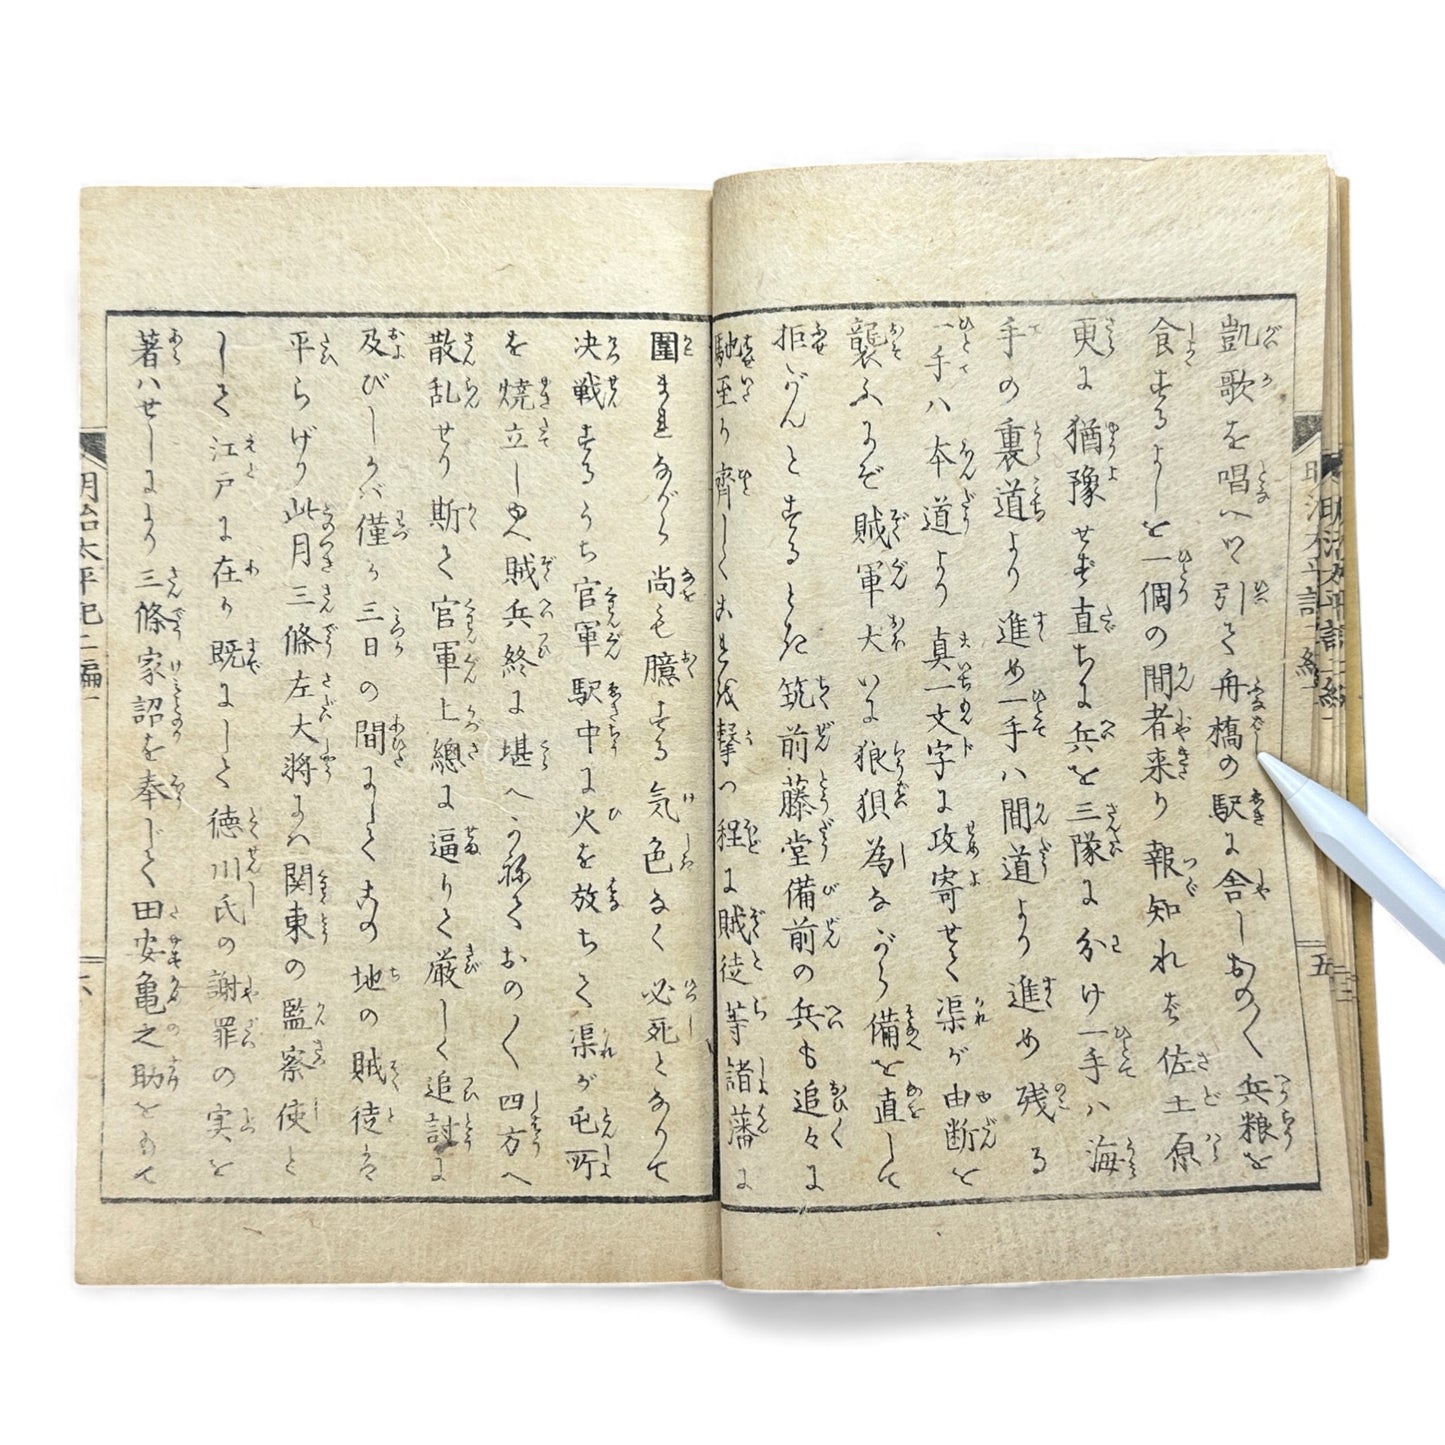 凱歌を唱へつゝ引て舟橋の駅に舎しおの〳〵兵粮を
食するよしを一個の間者来り報知れば佐土原
更に猶豫せず直ちに兵を三隊に分け一手ハ海
手の裏道より進め一手ハ間道より進め残る
一手ハ本道より真一文字に攻寄せて渠が由断を
襲ふにぞ賊軍大いに狼狽為ながら備を直して
拒がんとするとき筑前藤堂備前の兵も追々に
馳至り齊しくこれを撃つ程に賊徒等諸藩に
圍まれながら尚も臆する気色なく必死となりて
决戦するうち官軍駅中に火を放ちて渠が屯所
を焼立しゆへ賊兵終に堪へかねておの〳〵四方へ
散乱せり斯て官軍上總に逼りて厳しく追討に
及びしかバ僅か三日の間にしてこの地の賊徒は
平らげり此月三條左大将にハ関東の監察使と
して江戸に在り既にして徳川氏の謝罪の実を
著ハせしにより三條家詔を奉じて田安亀之助をもて
明治太平記二編
五